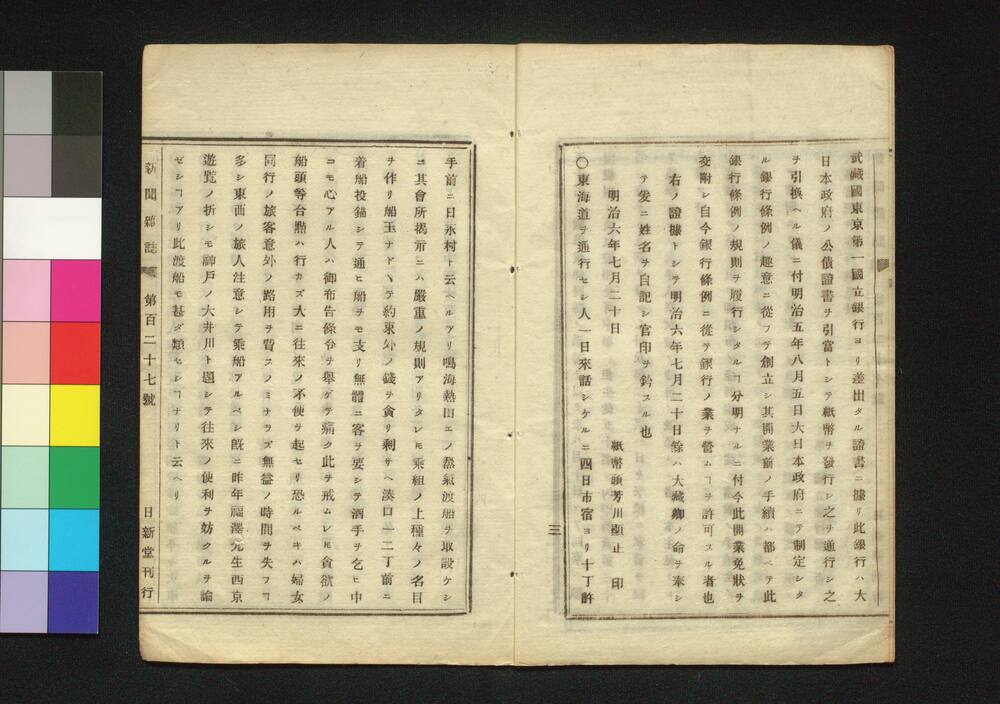 武藏國東京第一國立銀行ヨリ差出タル證書ニ據リ此銀行ハ大
日本政府ノ公債證書ヲ引當トシテ紙幣ヲ發行シ之ヲ通行シ之
ヲ引換ヘル儀ニ付明治五年八月五日大日本政府ニテ制定シタ
ル銀行條例ノ趣意ニ從フテ創立シ其開業前ノ手續ハ都ベテ此
銀行條例ノ規則ヲ履行シタルヿ分明ナルニ付今此開業免狀ヲ
交附シ自今銀行條例ニ從テ銀行ノ業ヲ營ムヿヲ許可スル者也
右ノ證據トシテ明治六年七月二十日餘ハ大藏卿ノ命ヲ奉シ
テ爰ニ姓名ヲ自記シ官印ヲ鈐スル也
明治六年七月二十日 紙幣頭芳川顯正 印
〇東海道ヲ通行セシ人一日來話シケルニ四日市宿ヨリ十丁許
三
手前ニ日永村ト云ヘルアリ鳴海熱田エノ蒸氣渡船ヲ取設ケシ
ニ其會所揭示ニハ嚴重ノ規則アリタレ𪜈乘組ノ上種々ノ名目
ヲ作リ船玉ナドヽテ約束外ノ錢ヲ貪リ剩サヘ湊口一二丁前ニ
着船投錨シテ通ヒ船ヲモ支リ無體ニ客ヲ要シテ酒手ヲ乞ヒ中
ニモ心アル人ハ御布告條令ヲ擧ゲテ痛ク此ヲ戒ムレ𪜈貪欲ノ
船頭等台㸃ハ行カズ大ニ往來ノ不便ヲ起セリ恐ルベキハ婦女
同行ノ旅客意外ノ路用ヲ費スノミナラズ無益ノ時間ヲ失フヿ
多シ東西ノ旅人注意シテ乘船アルベシ旣ニ昨年福澤先生西京
遊覽ノ折シモ神戸ノ大井川ト題シテ往來ノ便利ヲ妨クルヲ論
ゼシヿアリ此渡船モ甚ダ類セシヿナリト云ヘリ
新聞雜誌 第百二十七號 日新堂刊行